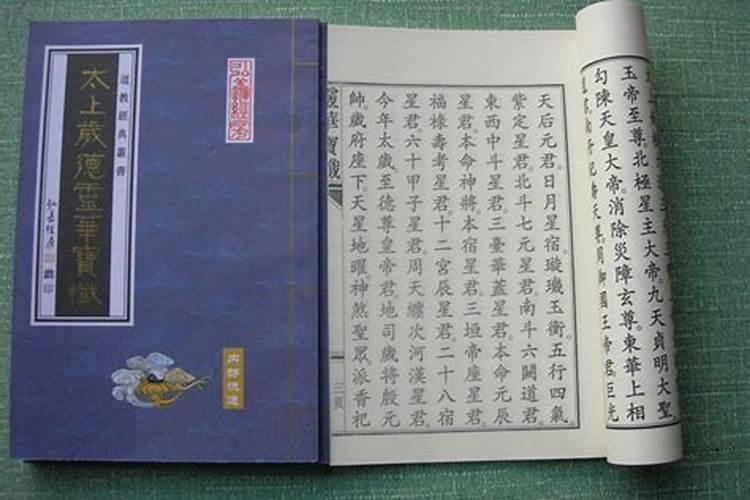 道教經典叢書
太上歲德靈華寶懺
內部流通
玉帝至尊。北極星主大帝。九天貞明大聖
勾陳天皇大帝。消除災障玄尊。東華上相
天尊。周御國王帝君。巨光
天后元君。日月星宿。璇璣玉衡。五行四氣。
紫定星君。北斗七元星君。南斗六闕道君。
東西中斗星君。三臺華蓋星君。本命元辰
星君。本命神將。本宿星君。三垣帝座星君。
福祿壽考星君。十二宮辰星君。二十八宿
星君。六十甲子星君。周天纏次河漢星君。
今年太歲。至德尊皇帝君。地司歲將殷元
帥。歲府座下。天星地曜。神煞聖眾。派香祀
華寶懺
三頁